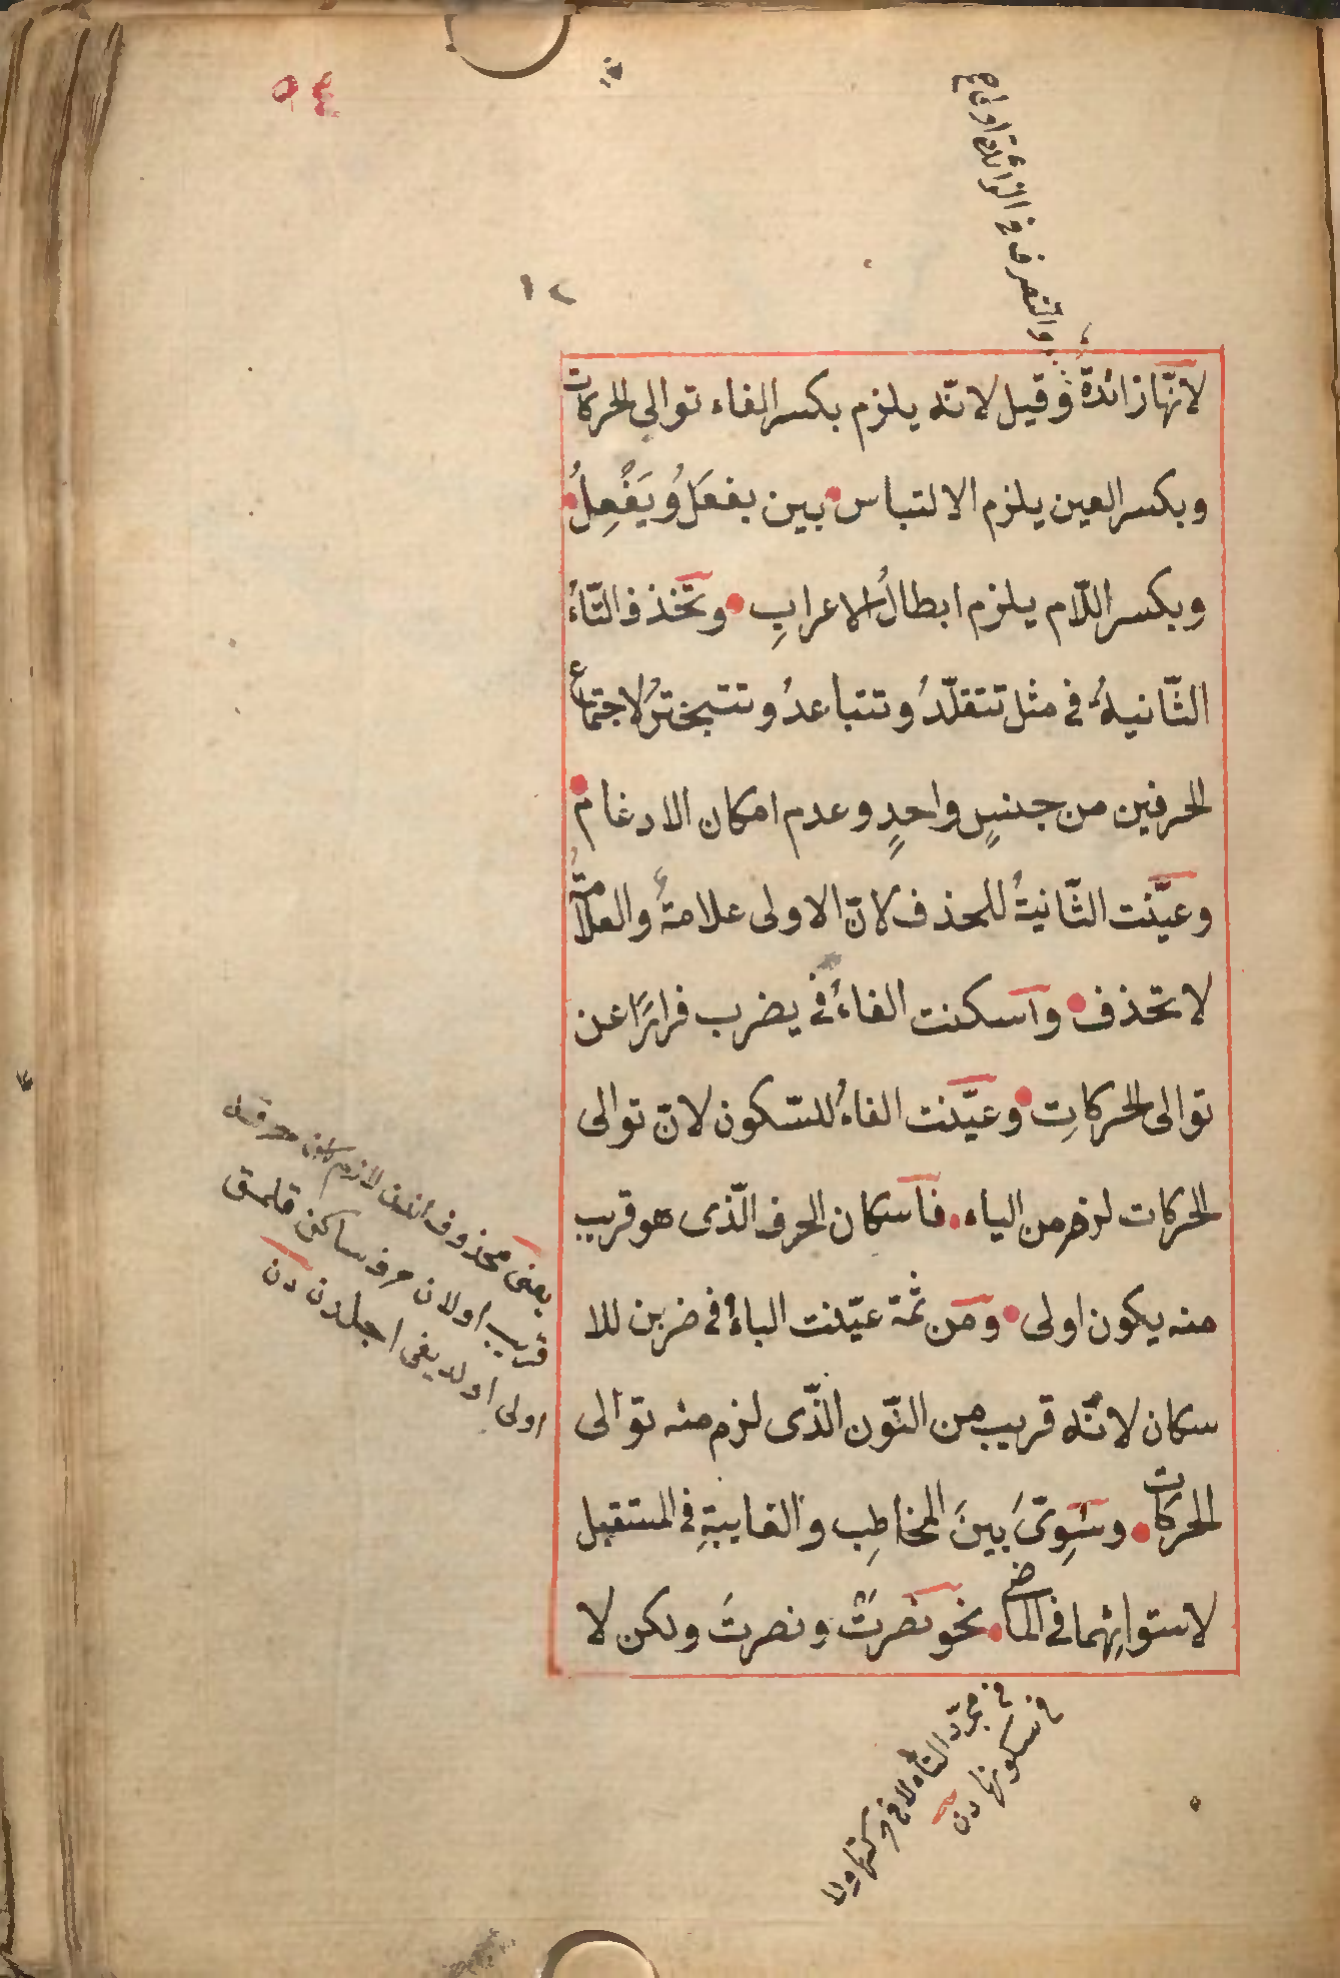 ٥٤
١٢
والتصرف في الزائدة اولى
لانّها زائدة وقيل لانّه يلزم بكسر الفاء توالي الحركات
وبكسر العين يلزم الالتباس بين يفعَلُ ويَفْعِلُ
وبكسر اللّام يلزم ابطالُ الاعرابِ وتحذف التّاءُ
الثّانيةُ في مثل تتقلّدُ وتتباعدُ وتتبخترُ لاجتماع
الحرفين من جنسٍ واحدٍ وعدم امكان الادغام
وعيّنت الثّانيةُ للحذف لانّ الاولى علامةٌ والعلامةُ
لا تحذف واسكنت الفاءُ في يضرب فرارًا عن
توالى الحركاتِ وعيّنت الفاءُ للسّكون لانّ توالى
الحركات لزم من الياء فاسكان الحرف الّذى هو قريب
منه يكون اولى ومن ثمة عيّنت الباءُ في ضربن للا
سكان لانّه قريب من النّون الذّى لزم منه توالى
الحركات وسَوِّىَ بينَ المخاطِب والغايبةِ في المستقبل
لاستوائِهما في الماضى نحو نصرتْ ونصرتَ ولكن لا
يعنى محذوف
قريب اولان حرف ساكن قلمق
اولى اولديغى اجلدن دن
في مجرّد التاء لا في
في سكونها دن